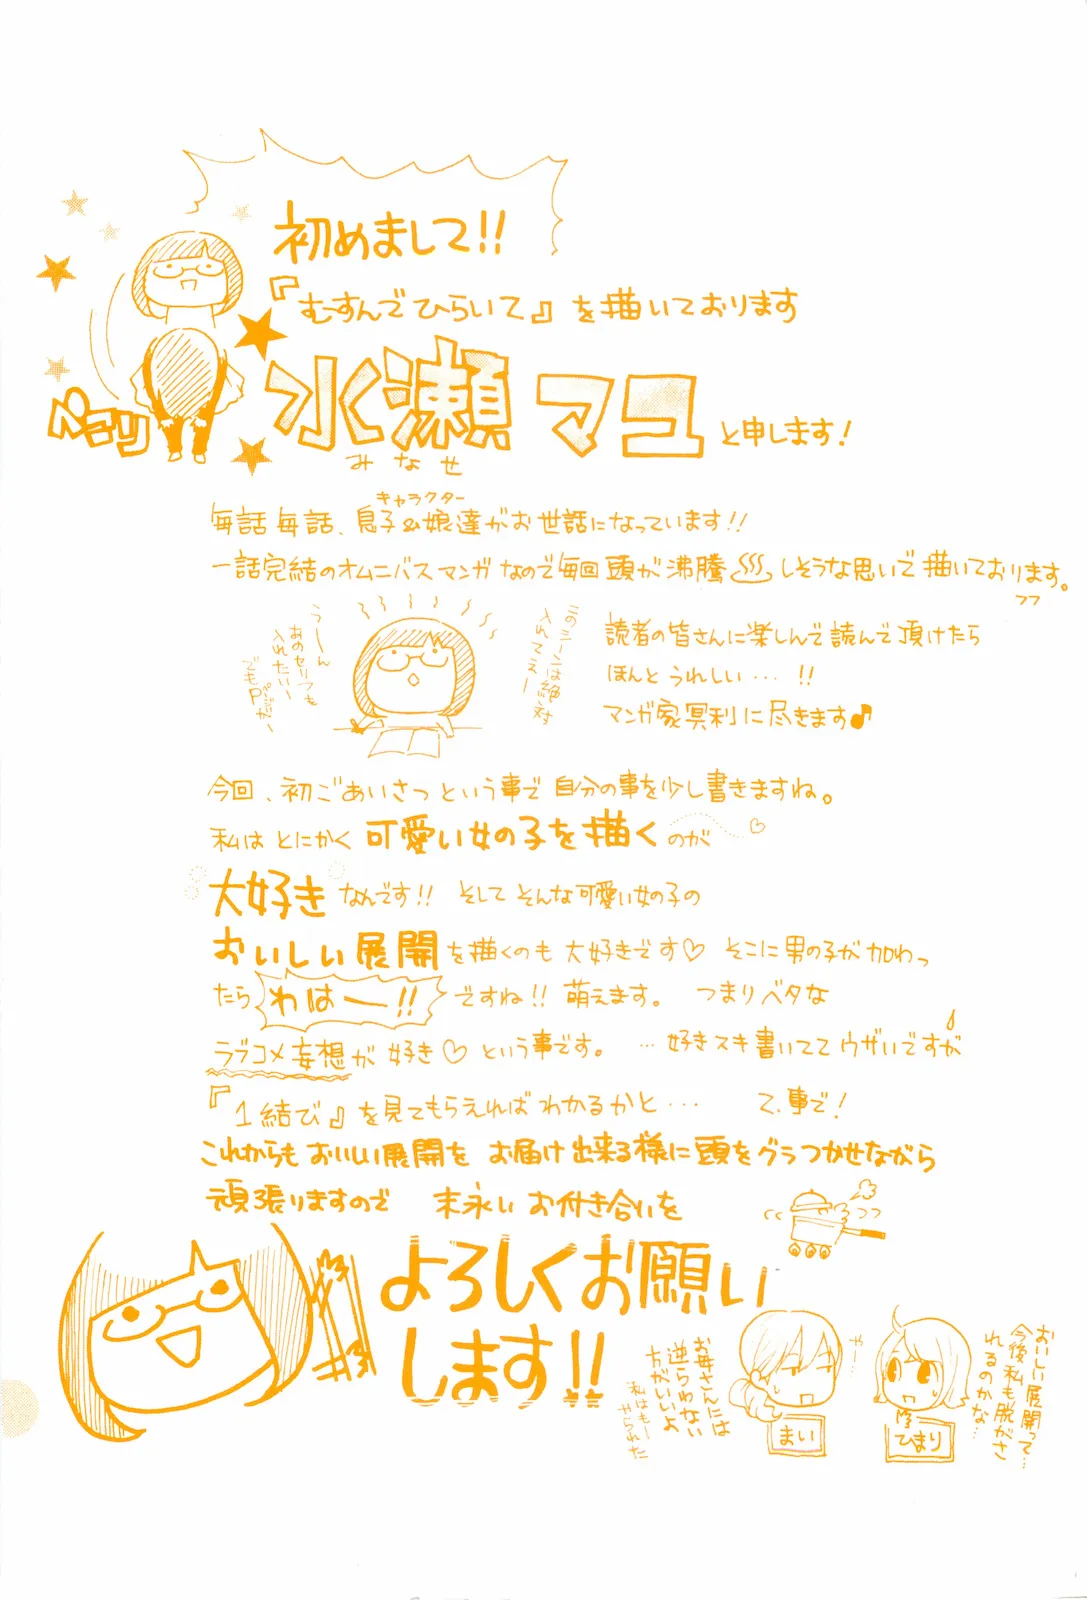 初めまして!!
『むすんでひらいて』を描いております
ペコリ
水瀬 マユ と申します!
みなせ
キャラクター
毎話毎話、息子&娘達がお世話になっています!!
一話完結のオムニバスマンガなので毎回頭が沸騰♨しそうな思いで描いております。
フフ
このシーンは絶対
入れてえー
うーん
あのセリフも
入れたい〜
でもP
読者の皆さんに楽しんで読んで頂けたら
ほんと うれしい…!!
マンガ家冥利に尽きます♪
今回、初ごあいさつという事で 自分の事を少し書きますね。
私は とにかく 可愛い女の子を描く のが ♡
大好き なんです!! そして そんな可愛い女の子の
おいしい展開を描くのも 大好きです♡ そこに男の子が加わっ
たら わはー!! ですね!! 萌えます。 つまりベタな
ラブコメ妄想が 好き♡ という事です。 …好きスキ書いててウザいですが♪
『1結び』を見てもらえればわかるかと… て、事で!
これからも おいしい展開を お届け出来る様に頭をグラつかせながら
頑張りますので 末永い お付き合いを
よろしくお願い
します!!
おいしい展開って…
今後私も脱がさ
れるのかな…
や…
お母さんには
逆らわない
方がいいよ
私はもー
やられた
まい
ひまり